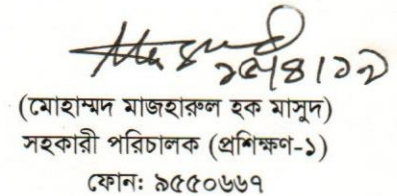 ২৫/৪/১৯
(মোহাম্মদ মাজহারুল হক মাসুদ)
সহকারী পরিচালক (প্রশিক্ষণ-১)
ফোন: ৯৫৫০৬৬৭